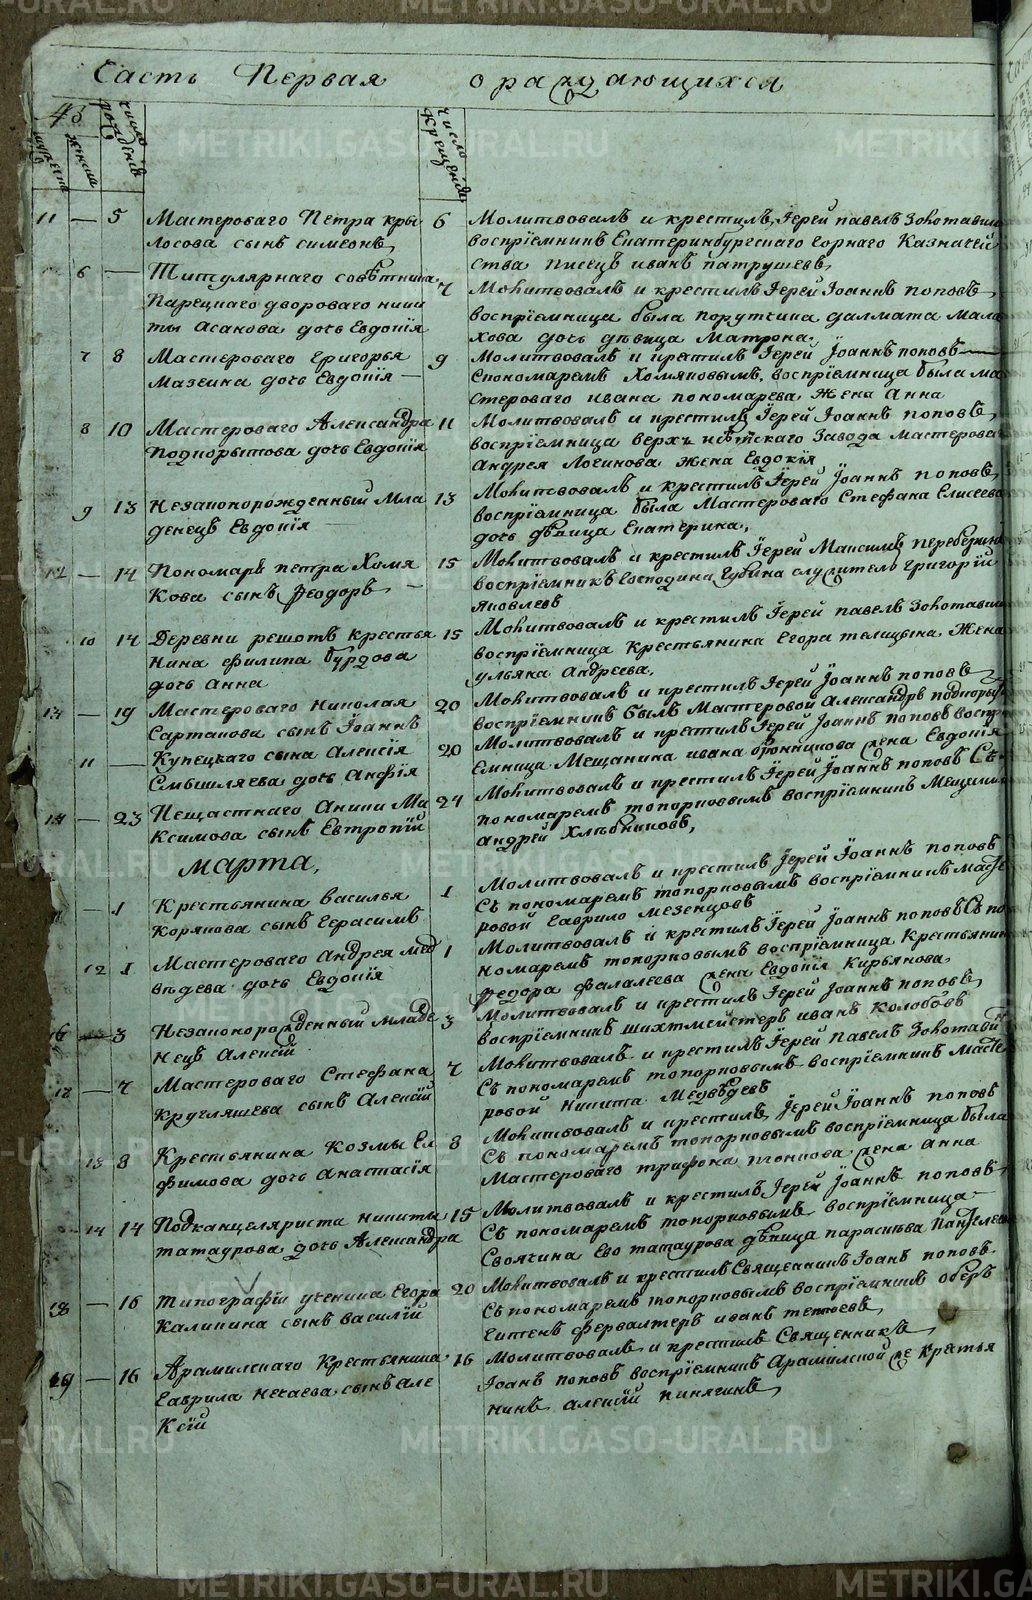 Часть Первая о раждающихся
43
мужеска
женска
число рожденій
число крещеній
11 — 5 Мастероваго Петра Кры
лосова сынъ симеонъ,
6 Молитвовалъ и крестилъ Іерей павелъ Золотавин
воспріемникъ Екатеринбургскаго горнаго Казначей
ства писецъ иванъ патрушевъ,
6 — Титулярнаго совѣтника
двороваго ники
ты Асанова дочь Евдокія
7 Молитвовалъ и крестилъ Іерей Іоаннъ поповъ,
воспріемница была порутчика далмата Мала
хова дочь дѣвица Матрона.
7 8 Мастероваго Григорья
Мазеина дочь Евдокія —
9 Молитвовалъ и крестилъ Іерей Іоаннъ поповъ —
Спономаремъ Хомяковымъ, воспріемница была ма
стероваго ивана пономарева жена Анна
8 10 Мастероваго Александра
Подкорытова дочь Евдокія
11 Молитвовалъ и крестилъ Іерей Іоаннъ поповъ,
воспріемница верхъ исѣтскаго Завода мастерова
Андрея Логинова жена Евдокія
9 13 Незаконорожденный мла
денецъ Евдокія —
13 Молитвовалъ и крестилъ Іерей Іоаннъ поповъ,
воспріемница была Мастероваго Стефана Елисеева
дочь дѣвица Екатерина,
12 — 14 Пономаря петра Хомя
Кова сынъ Феодоръ, —
15 Молитвовалъ и крестилъ Іерей Максимъ
воспріемникъ Господина Губина служитель григорій
Яковлевъ
10 14 Деревни решотъ крестья
нина филипа бурдова
дочь Анна
15 Молитвовалъ и крестилъ Іерей павелъ Золотавин
воспріемница Крестьянина Егора телицына жена
ульяна Андреева,
13 — 19 Мастероваго Николая
Сартакова сынъ Іоаннъ
20 Молитвовалъ и крестилъ Іерей Іоаннъ поповъ
воспріемникъ былъ Мастеровой Александръ подкоры
11 — Купецкаго сына Алексія
Смышляева дочь Анфія
20 Молитвовалъ и крестилъ Іерей Іоаннъ поповъ воспрі
емница Мещанина ивана бронникова жена Евдокія
14 — 23 Нещастнаго Аники Ма
Ксимова сынъ Евтропій
24 Молитвовалъ и крестилъ Іерей Іоаннъ поповъ Съ
пономаремъ топорковымъ воспріемникъ Мещанин
андрей Хлѣбниковъ,
марта,
— 1 Крестьянина василья
Корякова сынъ Герасимъ
1 Молитвовалъ и крестилъ Іерей Іоаннъ поповъ
Съ пономаремъ топорковымъ воспріемникъ масте
ровой гаврило мезенцовъ
12 1 Мастероваго Андрея Мед
вѣдева дочь Евдокія
1 Молитвовалъ и крестилъ Іерей Іоаннъ поповъ Съ по
номаремъ топорковымъ воспріемница Крестьянин
Федора фалалеева жена Евдокія Кирьянова
16 — 3 Незаконорожденный младе
нецъ Алексій
3 Молитвовалъ и крестилъ Іерей Іоаннъ поповъ,
воспріемникъ шихтмейстеръ иванъ Колобовъ
17 — 4 Мастероваго Стефана
Кругляшева сынъ Алексій
4 Молитвовалъ и крестилъ Іерей Павелъ Золотавин
Съ пономаремъ топорковымъ воспріемникъ масте
ровой Никита Медвѣдевъ
13 8 Крестьянина Козмы Ел
фимова дочь анастасія
8 Молитвовалъ и крестилъ, Іерей Іоаннъ поповъ
Съ пономаремъ топорковымъ воспріемница была
Мастероваго трифона жена Анна
14 14 Подканцеляриста никиты
татаурова дочь Александра
15 Молитвовалъ и крестилъ Іерей Іоаннъ поповъ,
Съ пономаремъ топорковымъ воспріемница
Своячина Ево татаурова дѣвица парасковья Пантелее
18 — 16 типографіи ученика Егора
Калинина сынъ василій
20 Молитвовалъ и крестилъ Священникъ Іоанъ поповъ
Съ пономаремъ топорковымъ воспріемникъ оберъ
гиттенъ фервалтеръ иванъ
19 — 16 Арамилскаго Крестьянина
гаврила нечаева сынъ але
Ксій
16 Молитвовалъ и крестилъ Священникъ,
Іоанъ поповъ воспріемникъ Арамилской же крестья
нинъ алексій
METRIKI.GASO-URAL.RU